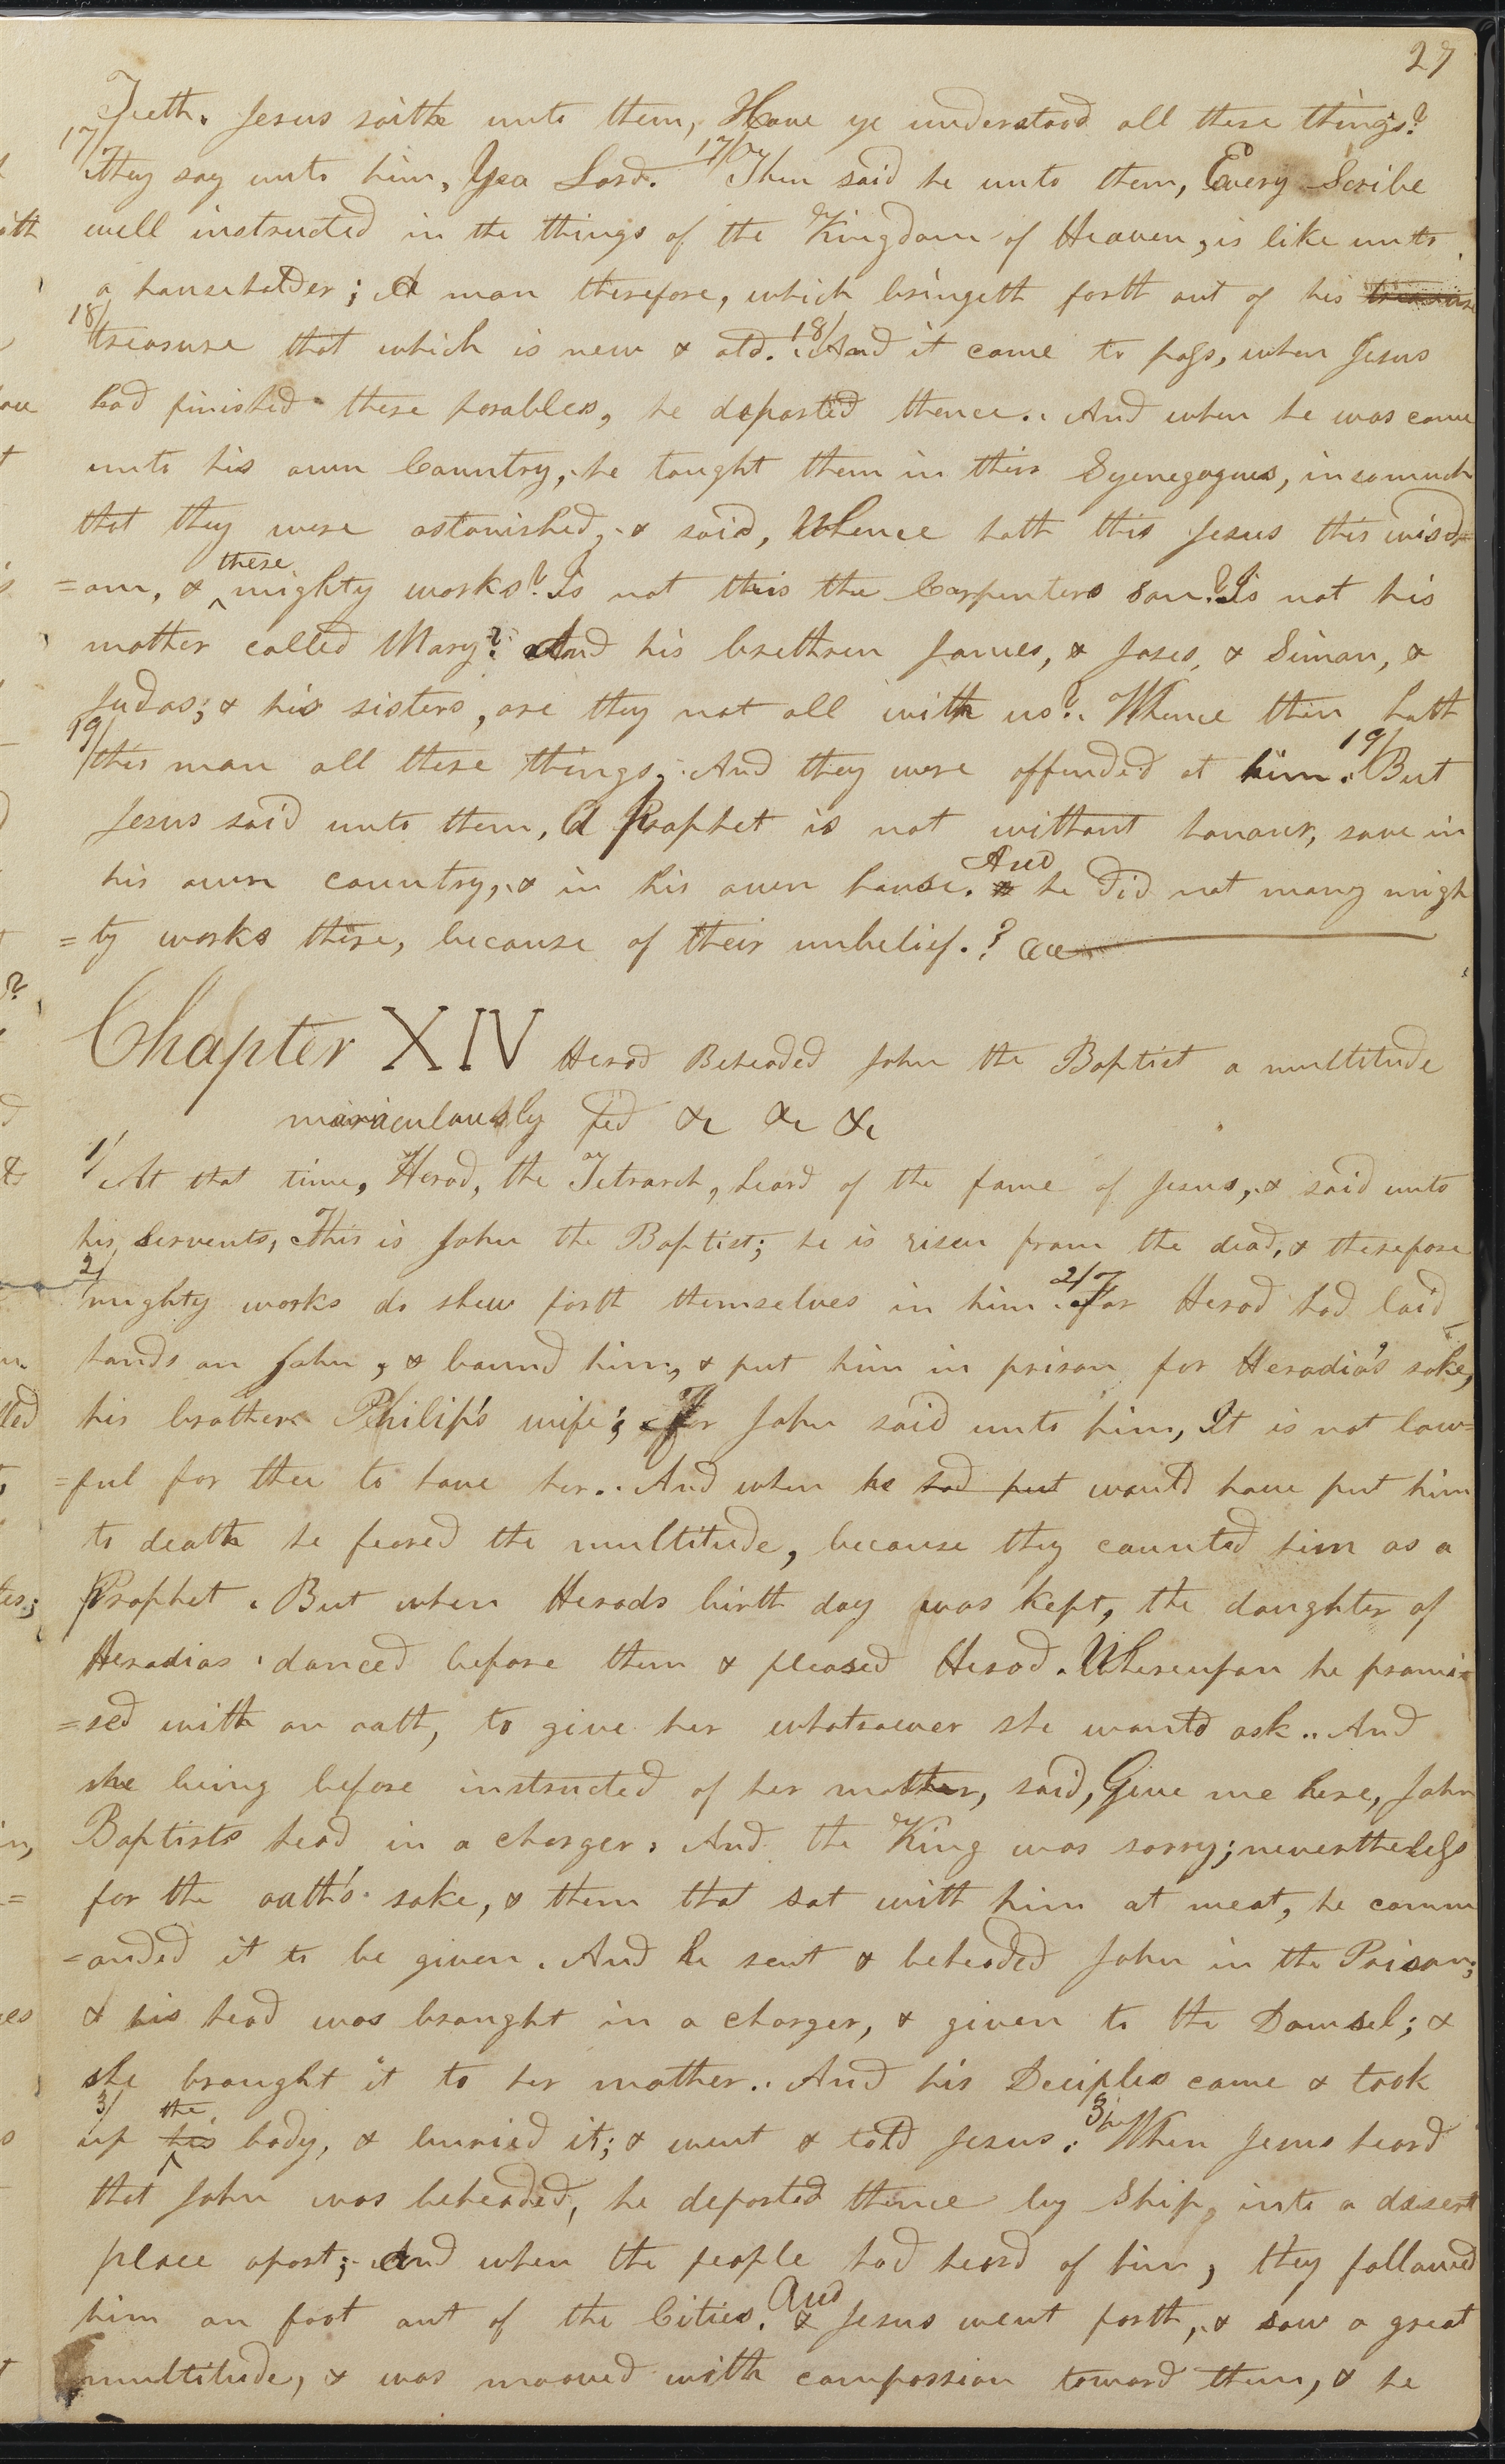 27
Teeth. Jesus saith unto them, Have ye understood all these things?
17/ They say unto him, Yea Lord. 17/ Then said he unto them, Every Scribe
well instructed in the things of the Kingdom of Heaven, is like unto
a householder; A man therefore, which bringeth forth out of his treasure
18/ treasure that which is new & old. 18/ And it came to pass, when Jesus
had finished these parables, he departed thence. And when he was come
unto his own Country, he taught them in their Syenegogues, insomuch
that they were astonished, & said, Whence hath this Jesus this wisd=
=om, & these mighty works? Is not this the Carpenters son? Is not his
mother called Mary? And his brethren James, & Joses, & Simon, &
Judas; & his sisters, are they not all with us? Whence then hath
19/ this man all these things, And they were offended at him. 19/ But
Jesus said unto them, A Prophet is not without honour, save in
his own country, & in his own house. & And he did not many migh
=ty works there, because of their unbelief.?
Chapter XIV Herod Beheaded John the Baptist a multitude
miraculously fed &c &c &c
1/ At that time, Herod, the Tetrarch, heard of the fame of Jesus, & said unto
his Servents, This is John the Baptist; he is risen from the dead, & therefore
2/ mighty works do shew forth themselves in him. 2/ For Herod had laid
hands on John, & bound him, & put him in prison for Herodia's sake,
his brother Philip's wife; For John said unto him, It is not law=
=ful for thee to have her. And when he had put would have put him
to death he feared the multitude, because they counted him as a
Prophet. But when Herods birth day was kept, the daughter of
Herodias danced before them & pleased Herod. Whereupon he promi=
=sed with an oath, to give her whatsoever she would ask. And
she being before instructed of her mother, said, Give me here, John
Baptists head in a charger. And the King was sorry; nevertheless
for the oath's sake, & them that sat with him at meat, he comm
=anded it to be given. And he sent & beheaded John in the Prison;
& his head was brought in a charger, & given to the Damsel; &
she brought it to her mother. And his Deciples came & took
3/ up his the body, & buried it; & went & told Jesus. 3/ When Jesus heard
that John was beheaded, he departed thence by Ship, into a desert
place apart; And when the people had heard of him, they followed
him on foot out of the Cities. & And Jesus went forth, & saw a great
multitude, & was mooved with compassion toward them, & he